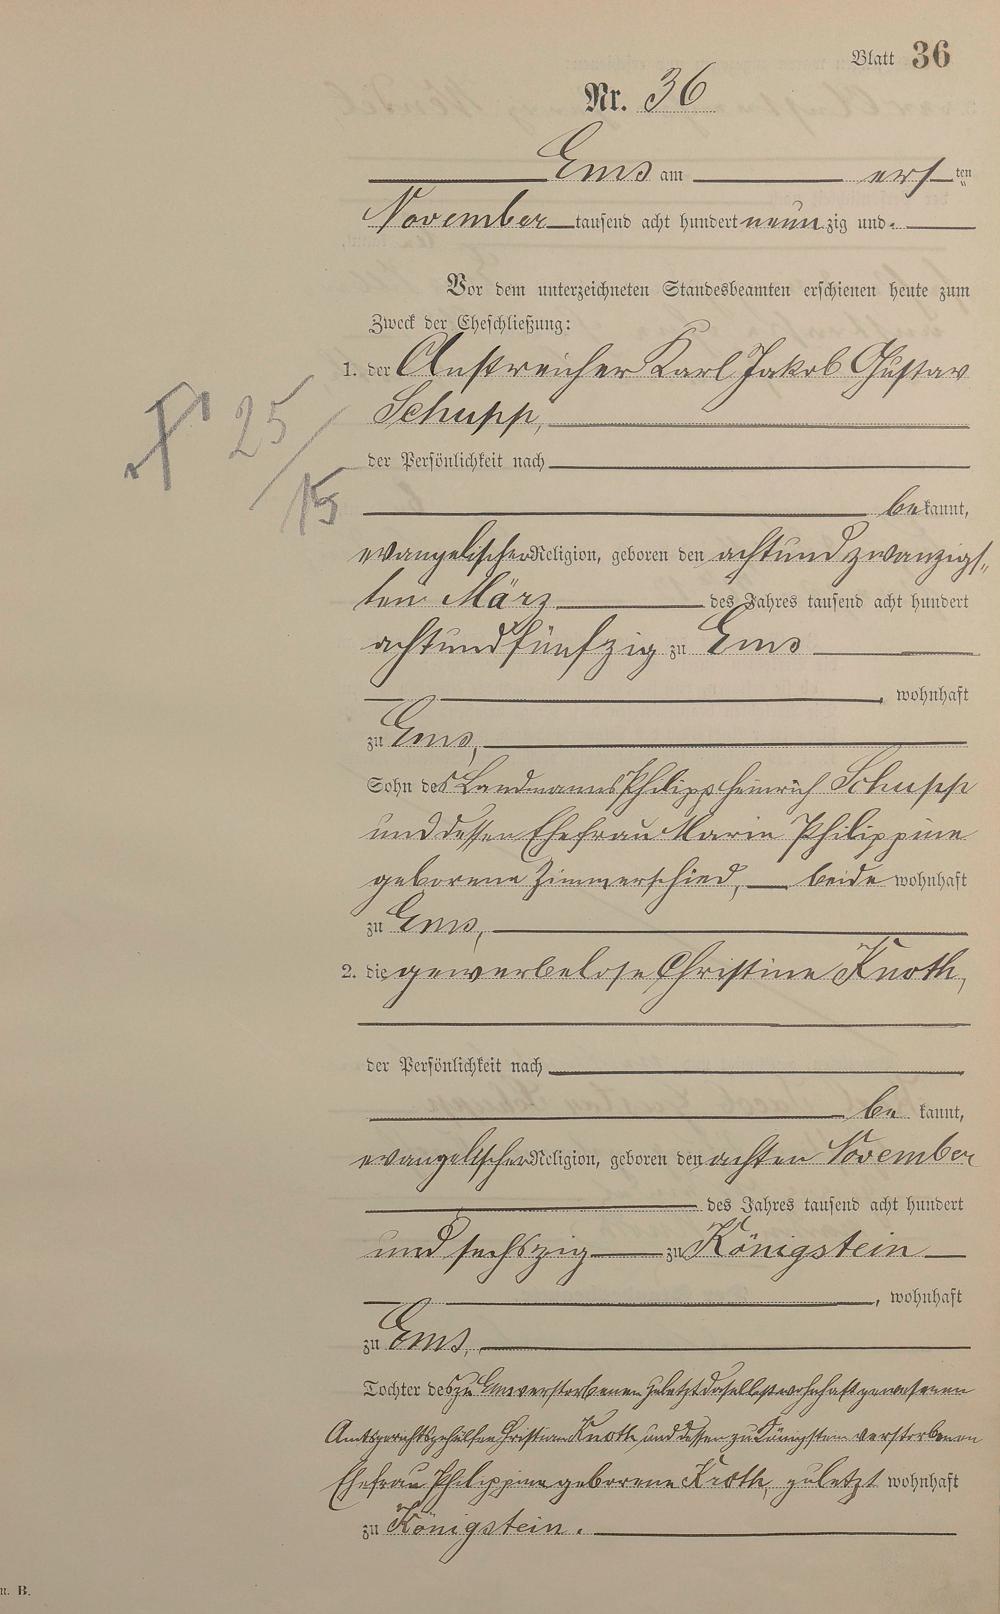 Blatt 36
Nr. 36
Ems am ersten
November tausend acht hundert neunzig und.
Vor dem unterzeichneten Standesbeamten erschienen heute zum
Zweck der Eheschließung:
1. der Anstreicher Karl Jakob Gustav
Schupp,
der Persönlichkeit nach
bekannt,
25/15
evangelischer Religion, geboren den achtundzwanzigs„
ten März des Jahres tausend acht hundert
achtundfünfzig zu Ems
, wohnhaft
zu Ems,
Sohn des Landmannes Philipp Heinrich Schupp
und dessen Ehefrau Marie Philippine
geborene Zimmerschied, beide wohnhaft
zu Ems,
2. die gewerbelose Christine Knoth,
der Persönlichkeit nach
bekannt,
evangelischer Religion, geboren den achten November
des Jahres tausend acht hundert
und sechszig zu Königstein
, wohnhaft
zu Ems,
Tochter des zu Ems verstorbenen zuletzt daselbst wohnhaft gewesenen
Amtsgerichtsgehülfen Christian Knoth und dessen zu Königstein verstorbenen
Ehefrau Philippine geborene zuletzt wohnhaft
zu Königstein.
B.